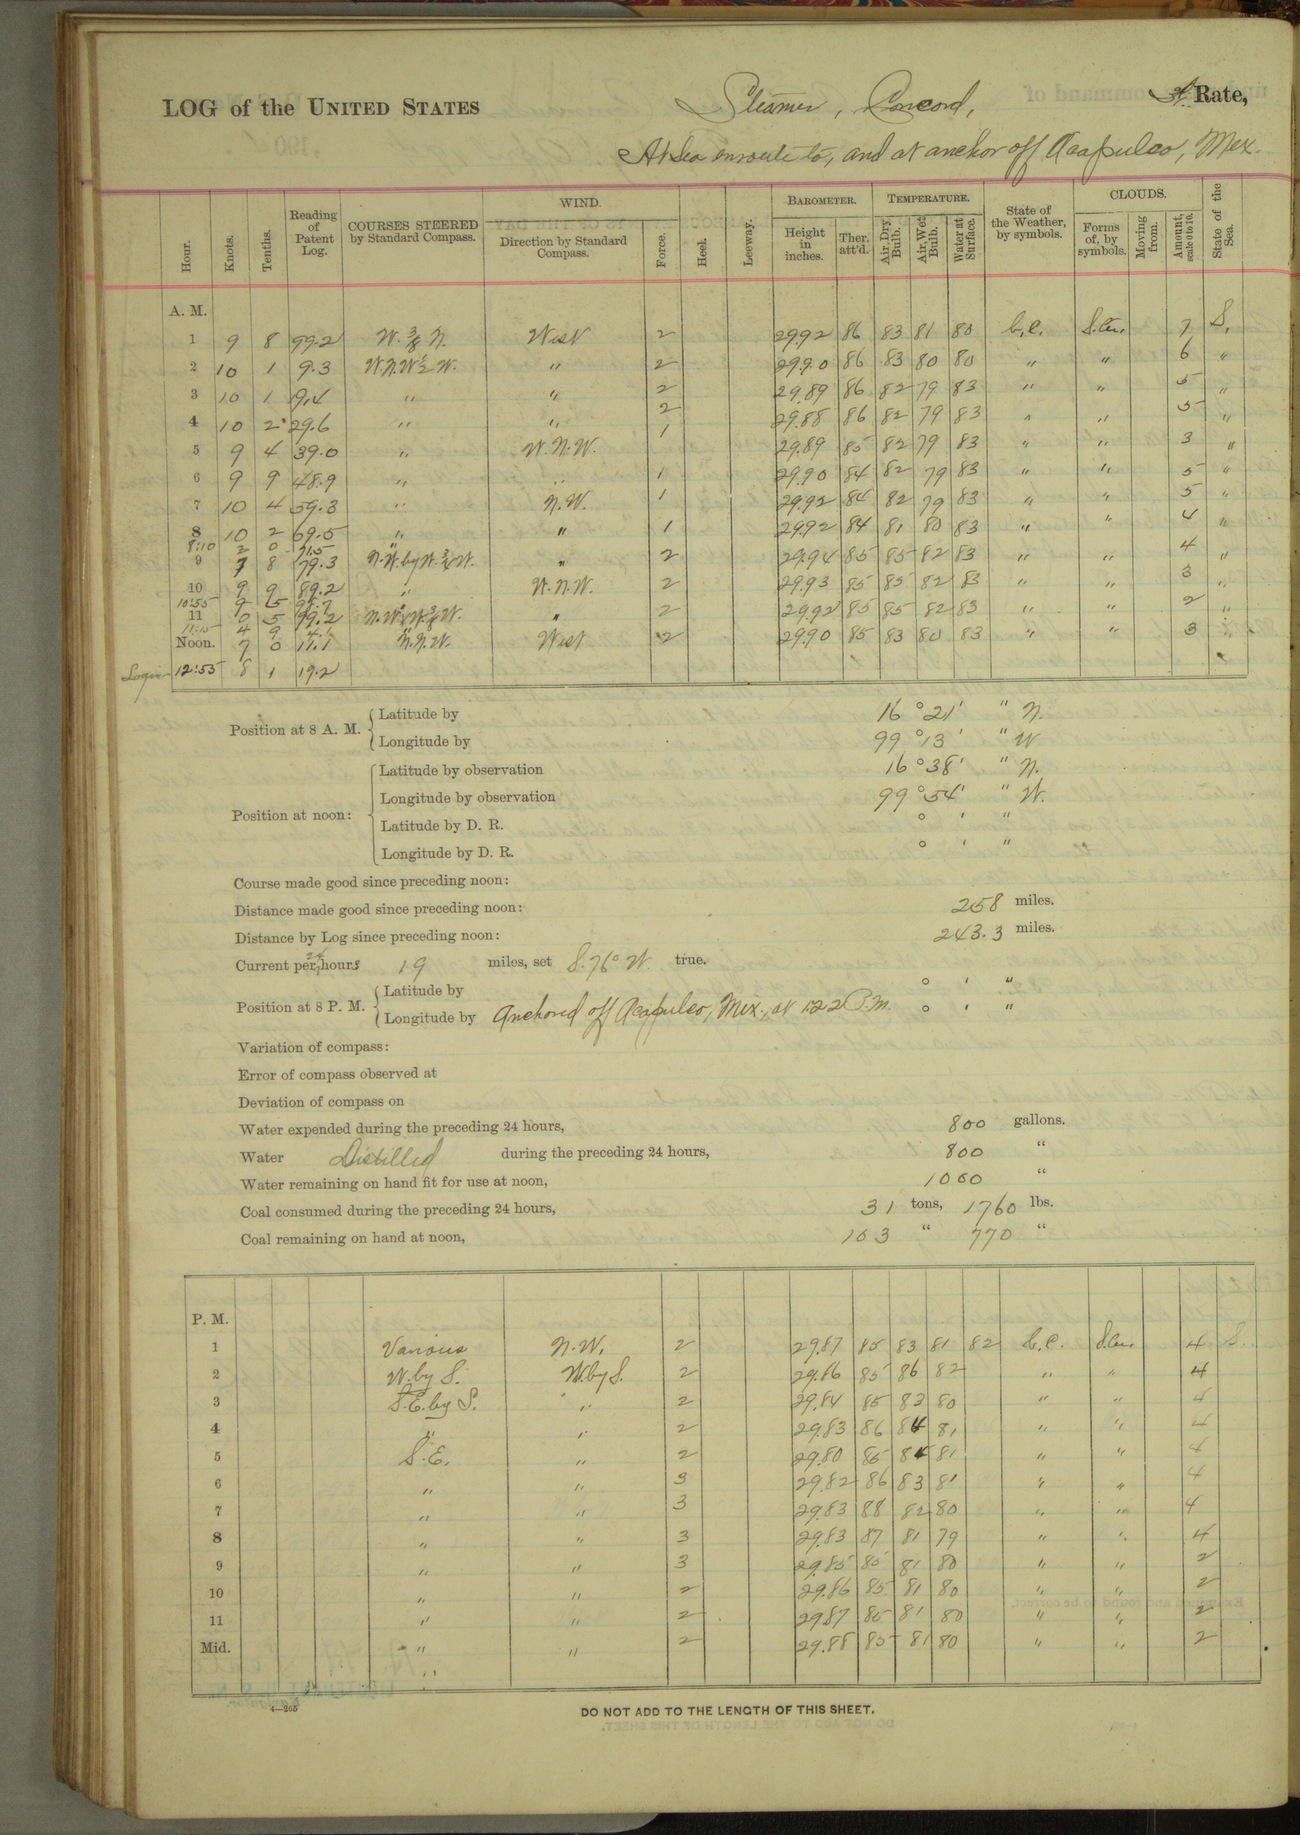 LOG of the UNITED STATES Steamer, Concord, Rate,
At Sea enroute to, and at anchor off Acapulco, Mex.
Hour. Knots. Tenths. Reading of Patent Log. COURSES STEERED by Standard Compass. WIND. Direction by Standard Compass. Force. Heel. Leeway. BAROMETER. Height in inches. Ther. att'd. TEMPERATURE. Air, Dry Bulb. Air, Wet Bulb. Water at Surface. State of the Weather, by symbols. CLOUDS. Forms of, by symbols. Moving from. Amount, scale 0 to 10. State of the Sea.
A. M.
1 9 8 99.2 W. 3/8 N. West 2 29.92 86 83 81 80 b.c. S.Cu. 7 S.
2 10 1 9.3 W.N.W 1/2 W. " 2 29.90 86 83 80 80 " " 6 "
3 10 1 19.4 " " 2 29.89 86 82 79 83 " " 5 "
4 10 2 29.6 " " 2 29.88 86 82 79 83 " " 5 "
5 9 4 39.0 " W.N.W. 1 29.89 85 82 79 83 " " 3 "
6 9 9 48.9 " " 1 29.90 84 82 79 83 " " 5 "
7 10 4 59.3 " N.W. 1 29.92 84 82 79 83 " " 5 "
8 10 2 69.5 " " 1 29.92 84 81 80 83 " " 4 "
8:10 2 0 71.5 "
9 7 8 79.3 N.W. by W. 3/4 W. " 2 29.94 85 85 82 83 " " 4 "
10 9 9 89.2 " W.N.W. 2 29.93 85 85 82 83 " " 3 "
10:55 9 5
11 0 5 99.2 " 2 29.92 85 85 82 83 " " 2 "
11:15 4 9 4.1 "
Noon. 7 0 11.1 N.N.W. West 2 29.90 85 83 80 83 " " 3 "
Log in 12:55 8 1 19.2
Position at 8 A. M. Latitude by 16 ° 21 ' " N.
Longitude by 99 ° 13 ' " W
Position at noon: Latitude by observation 16 ° 38 ' " N.
Longitude by observation 99 ° 54 ' " W.
Latitude by D. R. ° ' "
Longitude by D. R. ° ' "
Course made good since preceding noon:
Distance made good since preceding noon: 258 miles.
Distance by Log since preceding noon: 243.3 miles.
Current per 24 hours 19 miles, set S. 76° W. true.
Position at 8 P. M. Latitude by ° ' "
Longitude by Anchored off Acapulco, Mex., at 1:22 P.M. ° ' "
Variation of compass:
Error of compass observed at
Deviation of compass on
Water expended during the preceding 24 hours, 800 gallons.
Water Distilled during the preceding 24 hours, 800 "
Water remaining on hand fit for use at noon, 1000 "
Coal consumed during the preceding 24 hours, 31 tons, 1760 lbs.
Coal remaining on hand at noon, 103 " 770 "
P. M.
1 Various N.W. 2 29.87 85 83 81 82 b.c. S.Cu. 4 S.
2 W. by S. W. by S. 2 29.86 85 86 82 " " 4
3 S.E. by S. " 2 29.84 85 83 80 " " 4
4 " " 2 29.83 86 84 81 " " 4
5 S.E. " 2 29.80 86 84 81 " " 4
6 " " 3 29.82 86 83 81 " " 4
7 " " 3 29.83 88 82 80 " " 4
8 " " 3 29.83 87 81 79 " " 4
9 " " 3 29.85 85 81 80 " " 2
10 " " 2 29.86 85 81 80 " " 2
11 " " 2 29.87 85 81 80 " " 2
Mid. " " 2 29.88 85 81 80 " " 2
"
4—265
DO NOT ADD TO THE LENGTH OF THIS SHEET.